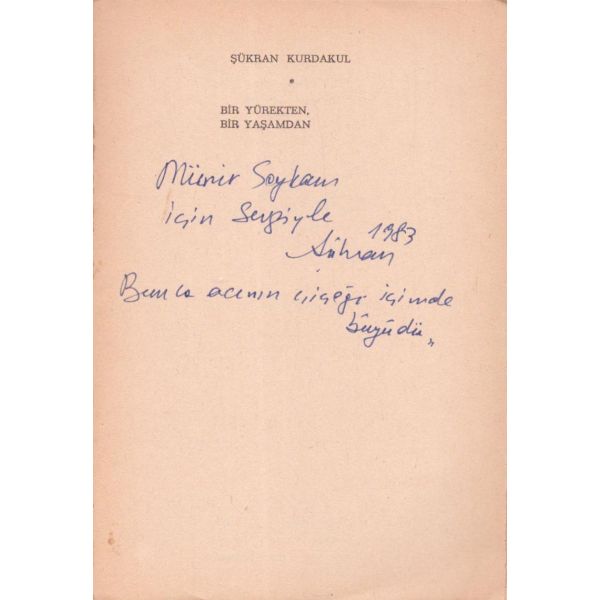 ŞÜKRAN KURDAKUL
*
BİR YÜREKTEN,
BİR YAŞAMDAN
Münir Soykam
için Sevgiyle
1983
Şükran
Bunca acının çiçeği içimde
büyüdü„